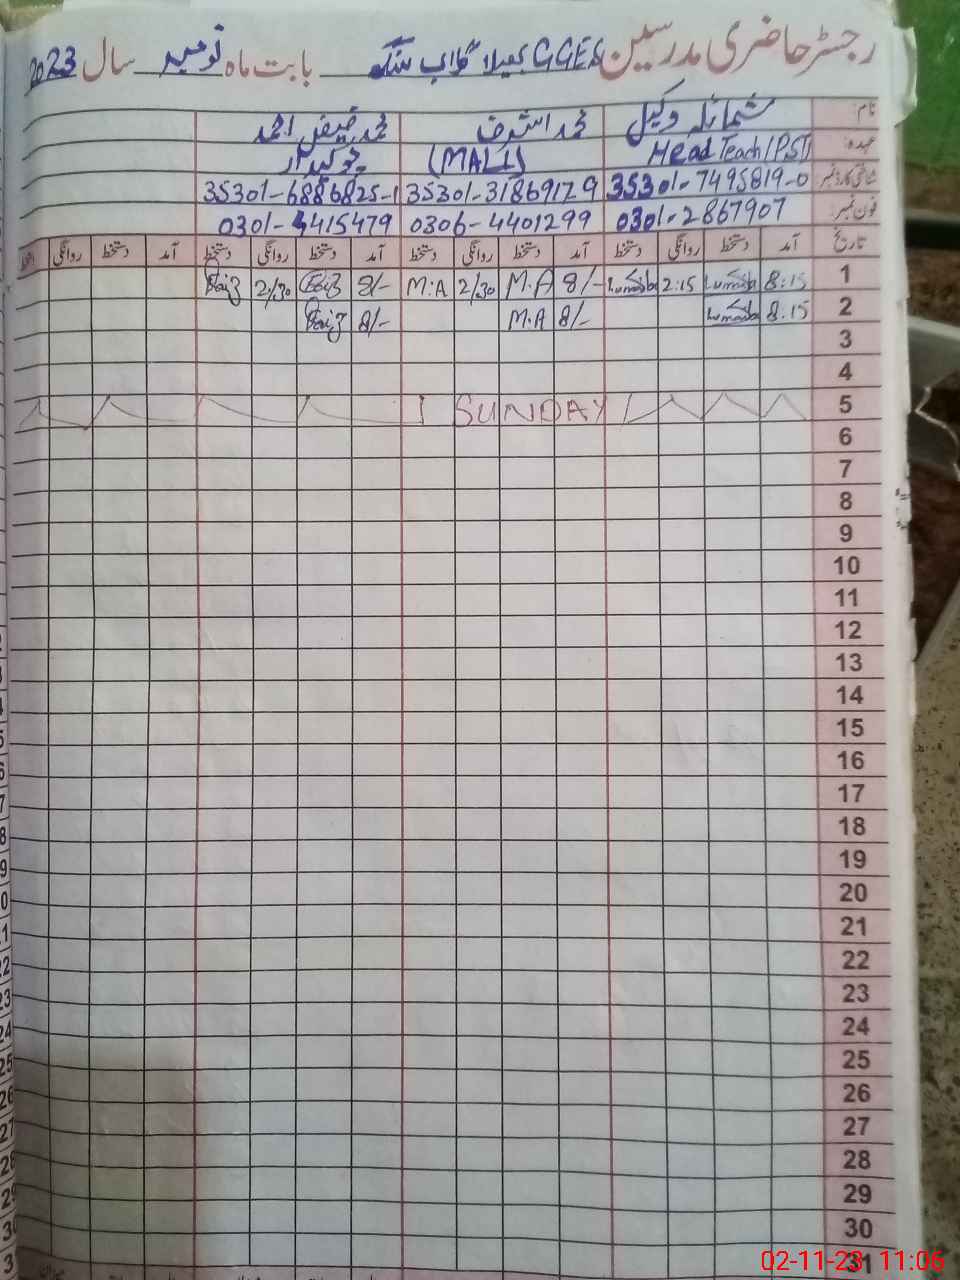 رجسٹر حاضری مدرسین GGES بھیلا گلاب سنگھ بابت ماہ نومبر سال 2023
نام: شمائلہ وکیل محمد اشرف محمد فیض احمد
عہدہ: Head Teach (PST) (MALI) چوکیدار
شناختی کارڈ نمبر 35301-7495819-0 35301-3186917-9 35301-6886825-1
فون نمبر: 0301-2867907 0306-4401299 0301-4415479
تاریخ آمد دستخط روانگی دستخط آمد دستخط روانگی دستخط آمد دستخط روانگی دستخط آمد دستخط روانگی
1 8:15 2:15 8/- M.A 2/30 M.A 8/- Faiz 2/30 Faiz
2 8:15 8/- M.A 8/- Faiz
3
4
5 SUNDAY
6
7
8
9
10
11
12
13
14
15
16
17
18
19
20
21
22
23
24
25
26
27
28
29
30
31
02-11-23 11:06